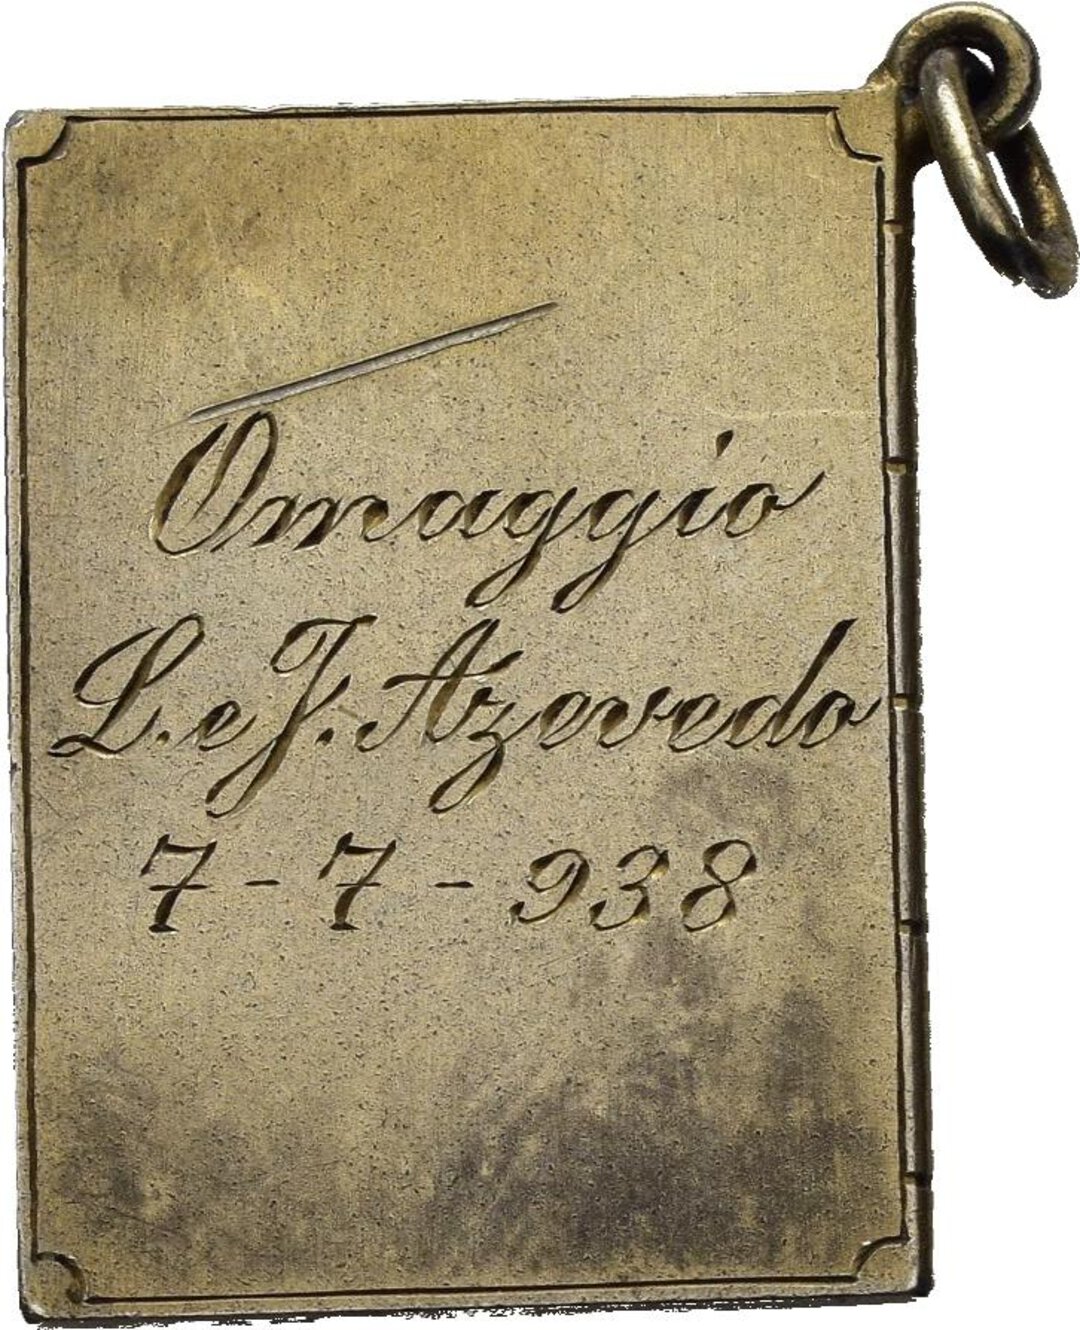 Omaggio
L. e J. Azevedo
7 - 7 - 938